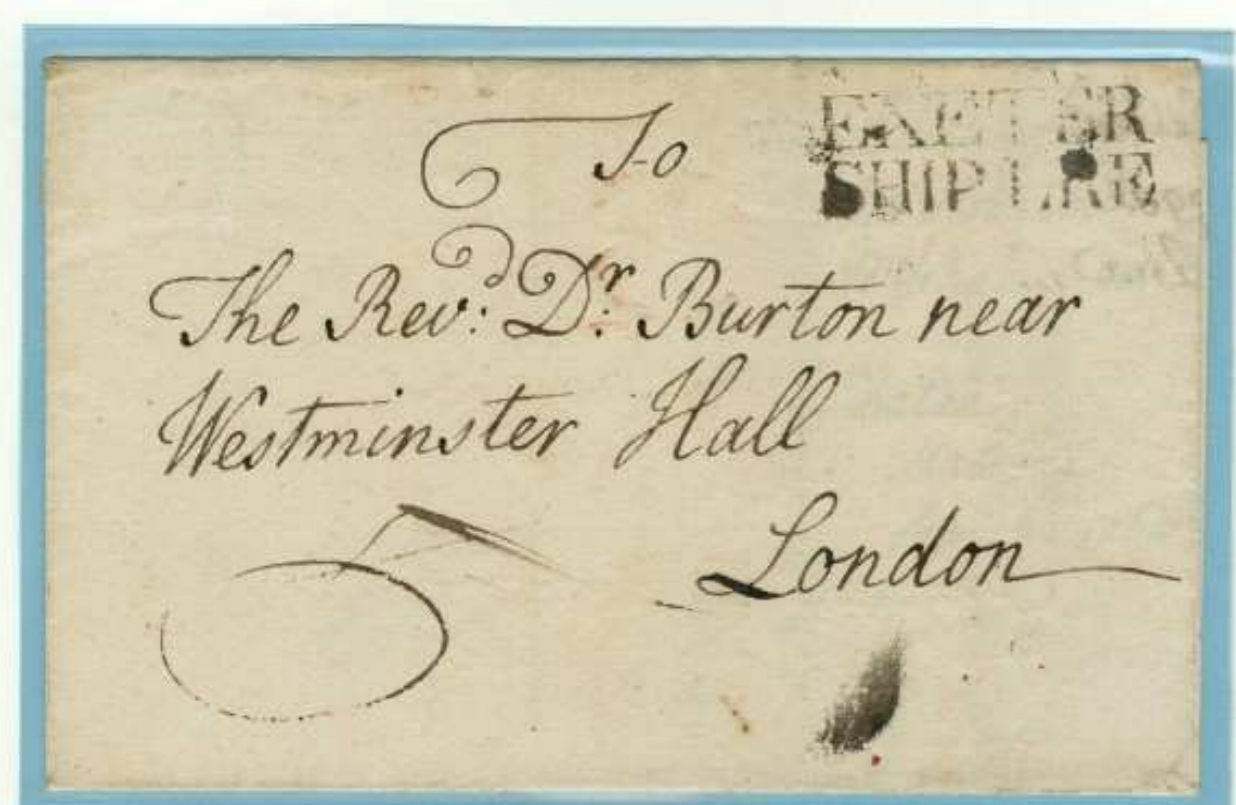 EXETER
SHIP LRE
To
The Revd: Dr: Burton near
Westminster Hall
London
5